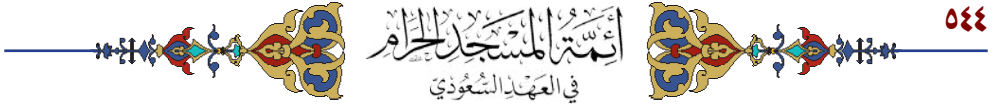 ٥٤٤
أَئِمَّةُ المَسْجِدِ الحَرَامِ
في العَهْدِ السُّعُودِيّ